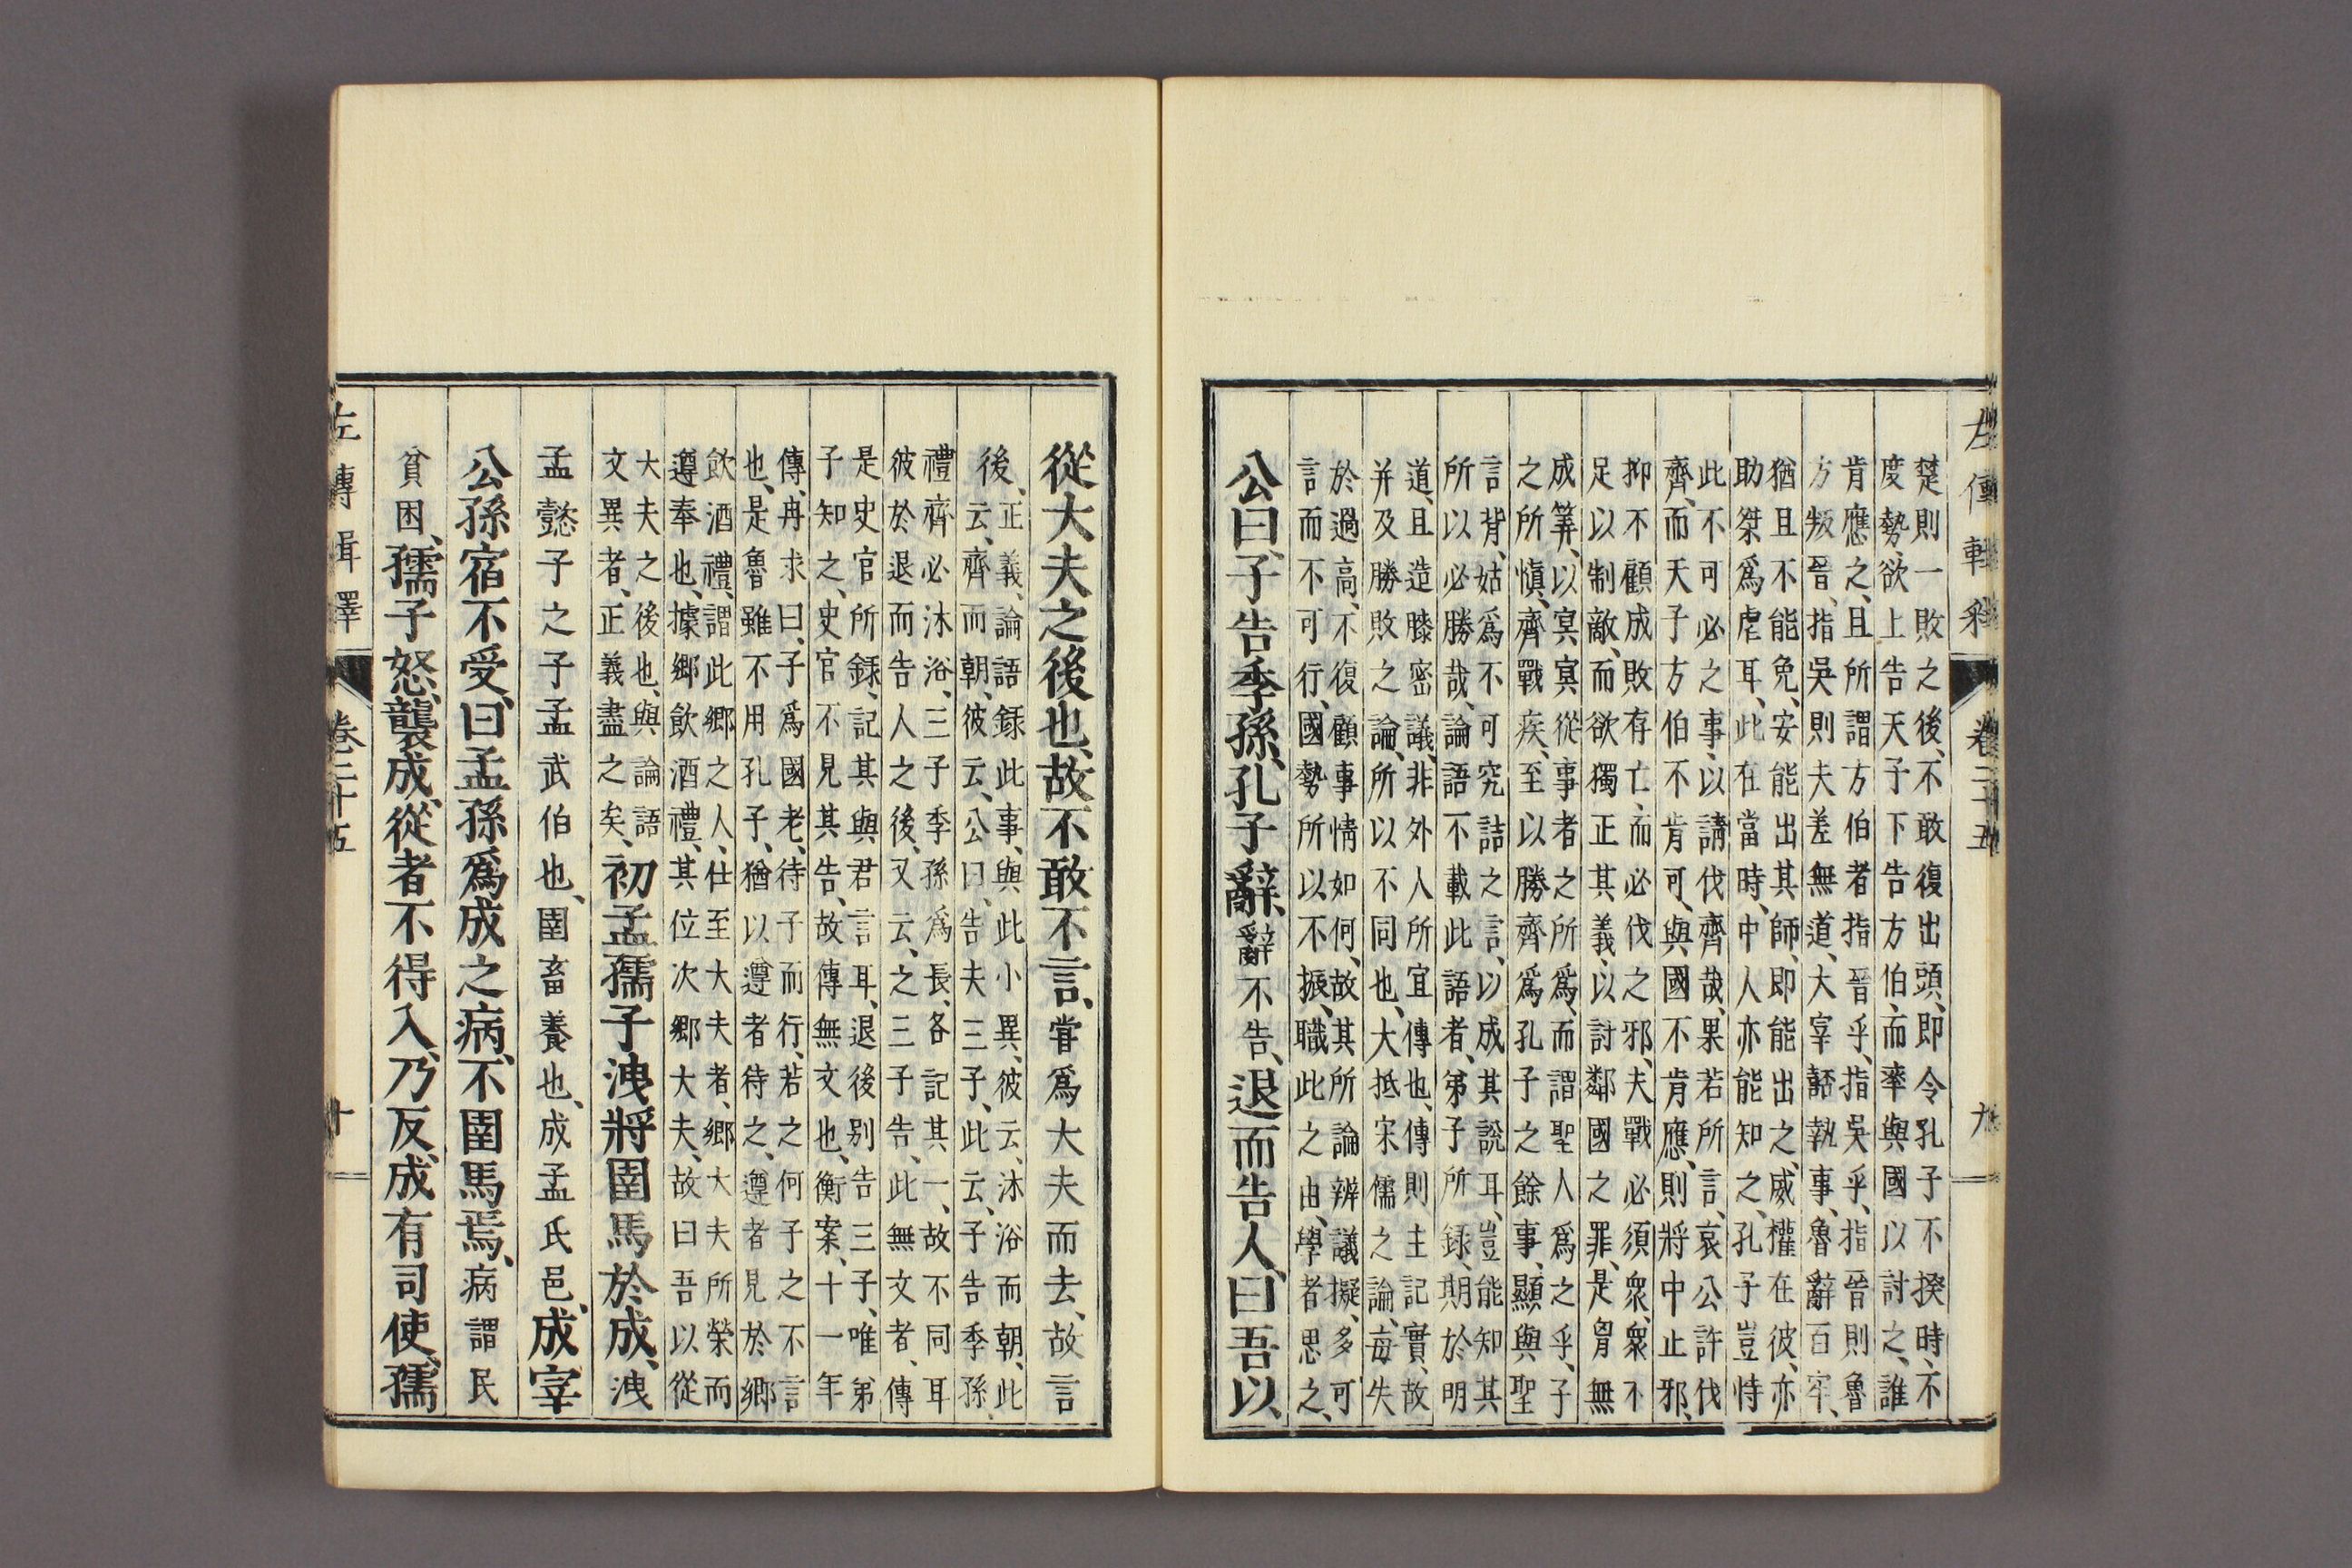 左傳輯釋 卷二十五 九
楚則一敗之後、不敢復出頭、即令孔子不揆時、不
度勢、欲上告天子下告方伯、而率與國以討之、誰
肯應之、且所謂方伯者指晉乎、指吳乎、指晉則魯
方叛晉、指吳則夫差無道、大宰嚭執事、魯辭百牢、
猶且不能免、安能出其師、即能出之、威權在彼、亦
助桀爲虐耳、此在當時、中人亦能知之、孔子豈恃
此不可必之事、以請伐齊哉、果若所言、哀公許伐
齊、而天子方伯不肯可、與國不肯應、則將中止邪、
抑不顧成敗存亡、而必伐之邪、夫戰必須衆、衆不
足以制敵、而欲獨正其義、以討鄰國之罪、是胷無
成筭、以冥冥從事者之所爲、而謂聖人爲之乎、子
之所愼、齊戰疾、至以勝齊爲孔子之餘事、顯與聖
言背、姑爲不可究詰之言、以成其說耳、豈能知其
所以必勝哉、論語不載此語者、第子所錄、期於明
道、且造膝密議、非外人所宜傳也、傳則主記實、故
并及勝敗之論、所以不同也、大抵宋儒之論、每失
於過高、不復顧事情如何、故其所論辨議擬、多可
言而不可行、國勢所以不振、職此之由、學者思之、
公曰、子告季孫、孔子辭、辭不告、退而告人、曰吾以
從大夫之後也、故不敢不言、嘗爲大夫而去、故言
後、正義、論語錄此事、與此小異、彼云、沐浴而朝、此
云、齊而朝、彼云、公曰、告夫三子、此云、子告季孫、
禮齊必沐浴、三子季孫爲長、各記其一、故不同耳
彼於退而告人之後、又云、之三子告、此無文者、傳
是史官所錄、記其與君言耳、退後別告三子、唯第
子知之、史官不見其告、故傳無文也、衡案、十一年
傳、冉求曰、子爲國老、待子而行、若之何子之不言
也、是魯雖不用孔子、猶以遵者待之、遵者見於鄉
飮酒禮、謂此鄉之人、仕至大夫者、鄉大夫所榮而
遵奉也、據鄉飮酒禮、其位次鄉大夫、故曰吾以從
大夫之後也、與論語
文異者、正義盡之矣、初孟孺子洩將圉馬於成、洩
孟懿子之子孟武伯也、圉畜養也、成孟氏邑、成宰
公孫宿不受、曰孟孫爲成之病、不圉馬焉、病謂民
貧困、孺子怒、襲成、從者不得入、乃反、成有司使、孺
左傳輯釋 卷二十五 十